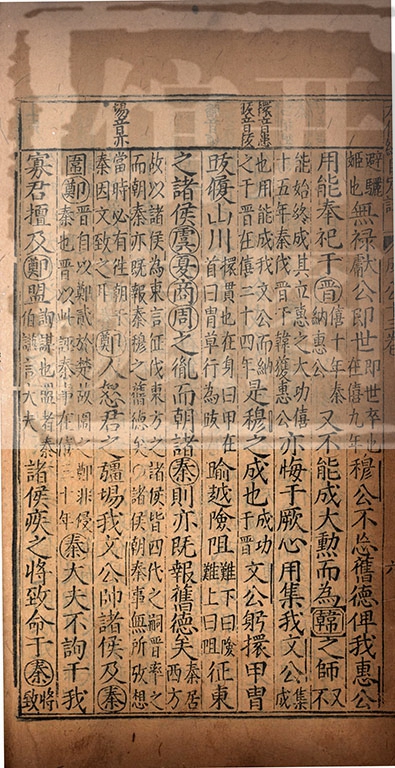 辟驪姬也無祿獻公即世即世卒也在僖九年穆公不忘舊德俾我惠公
用能奉祀于晉僖十年秦納惠公又不能成大勳而為韓之師又不
能始終成其立惠之大功僖十五年秦伐晉于韓獲惠公亦悔于厥心用集我文公集成
擐音患
也用能成我文公而納之于晉在僖二十四年是穆之成也成功于晉文公躬擐甲胄
跋履山川擐貫也在身曰甲在首曰胄草行為跋踰越險阻難下曰險難上曰阻征東
之諸侯虞夏商周之胤而朝諸秦則亦既報舊德矣秦居西方
故以諸侯為東言征伐東方之諸侯皆四代之嗣晉率之而朝秦亦既報秦穆之舊德矣○諸侯朝秦事無所攷想
埸音亦
當時必有往朝于秦因文致之耳鄭人怒君之疆埸我文公帥諸侯及秦
圍鄭晉自以鄭貳於楚故圍之鄭非侵秦也晉以此誣秦事在僖三十年秦大夫不詢于我
寡君擅及鄭盟詢謀也盟者秦伯謙言大夫諸侯疾之將致命于秦將致